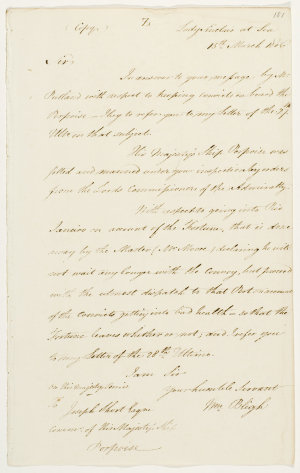 (Copy) 7. 181
Lady Sinclair at Sea
15th March 1806
Sir
In answer to your message by Mr
Putland with respect to keeping convicts on board the
Porpoise – I beg to refer you to my letter of the 27th
Ulto on that subject.
His Majesty's Ship Porpoise was
fitted and manned under your inspection by orders
from the Lords Commissioners of the Admiralty.
With respect to going into Rio
Janeiro on account of the Fortune, that is done
away by the Master (Mr Moore) declaring he will
not wait any longer with the convoy, but proceed
with the utmost dispatch to that Port on account
of the convicts getting into bad health – so that the
Fortune leaves whether or not; and I refer you
to my letter of the 28th Ultimo.
I am Sir
On His Majestys Service
Your humble Servant
To
Joseph Short Esqre
Wm Bligh
Comr. of His Majestys Ship
Porpoise